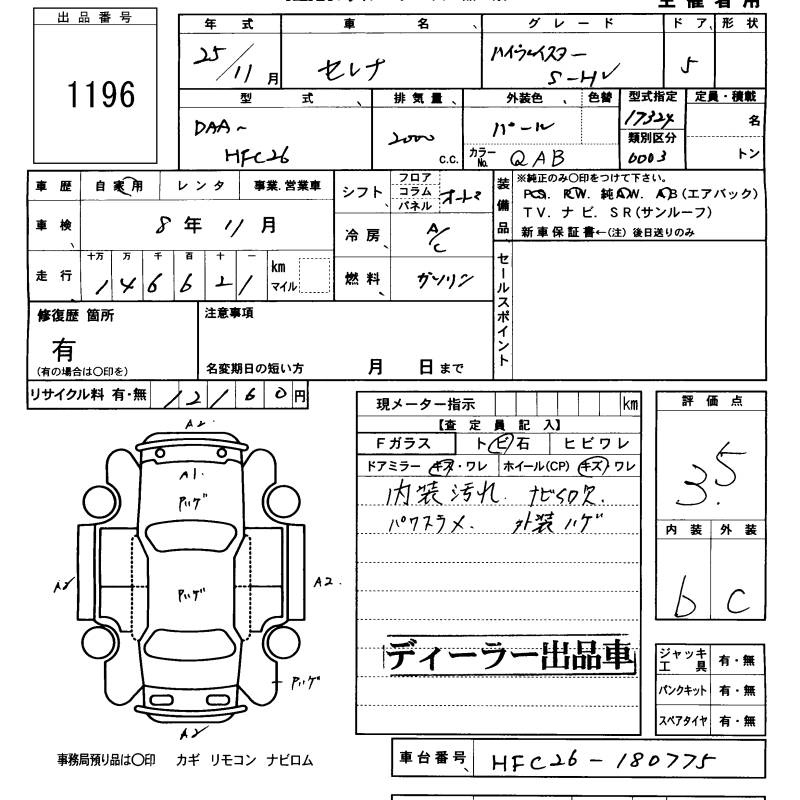 主催者用
出品番号
1196
年式 車名、 グレード ドア、形状
25/11月 セレナ ハイウェイスター S-HV 5
型式、 排気量、 外装色、色替 型式指定 定員・積載
DAA~ HFC26 2000 C.C. パール 17324 名
類別区分
カラーNo. QAB 0003 トン
車歴 自家用 レンタ 事業.営業車
シフト、 フロア コラム パネル オートマ
装備品、
※純正のみ〇印をつけて下さい。
P.S. P.W. 純A.W. A.B(エアバック)
TV. ナビ. SR(サンルーフ)
新車保証書←(注) 後日送りのみ
車検、 8年 11月
冷房、 A/C
走行、 十万 万 千 百 十 一
146621 km マイル
燃料、 ガソリン
セールスポイント
修復歴 箇所
有
(有の場合は〇印を)
注意事項
名変期日の短い方 月 日まで
リサイクル料 有・無 12160円
現メーター指示 km
【査定員記入】
Fガラス トビ石 ヒビワレ
ドアミラー キズ・ワレ ホイール(CP) キズ・ワレ
内装汚れ. ナビSD欠.
パワスラメ. 外装ハゲ
ディーラー出品車
評価点
3.5
内装 外装
b C
A2
A1
Pハゲ
Pハゲ
A2
A2.
Pハゲ
A2
ジャッキ工具 有・無
パンクキット 有・無
スペアタイヤ 有・無
事務局預り品は〇印 カギ リモコン ナビロム
車台番号、 HFC26-180775